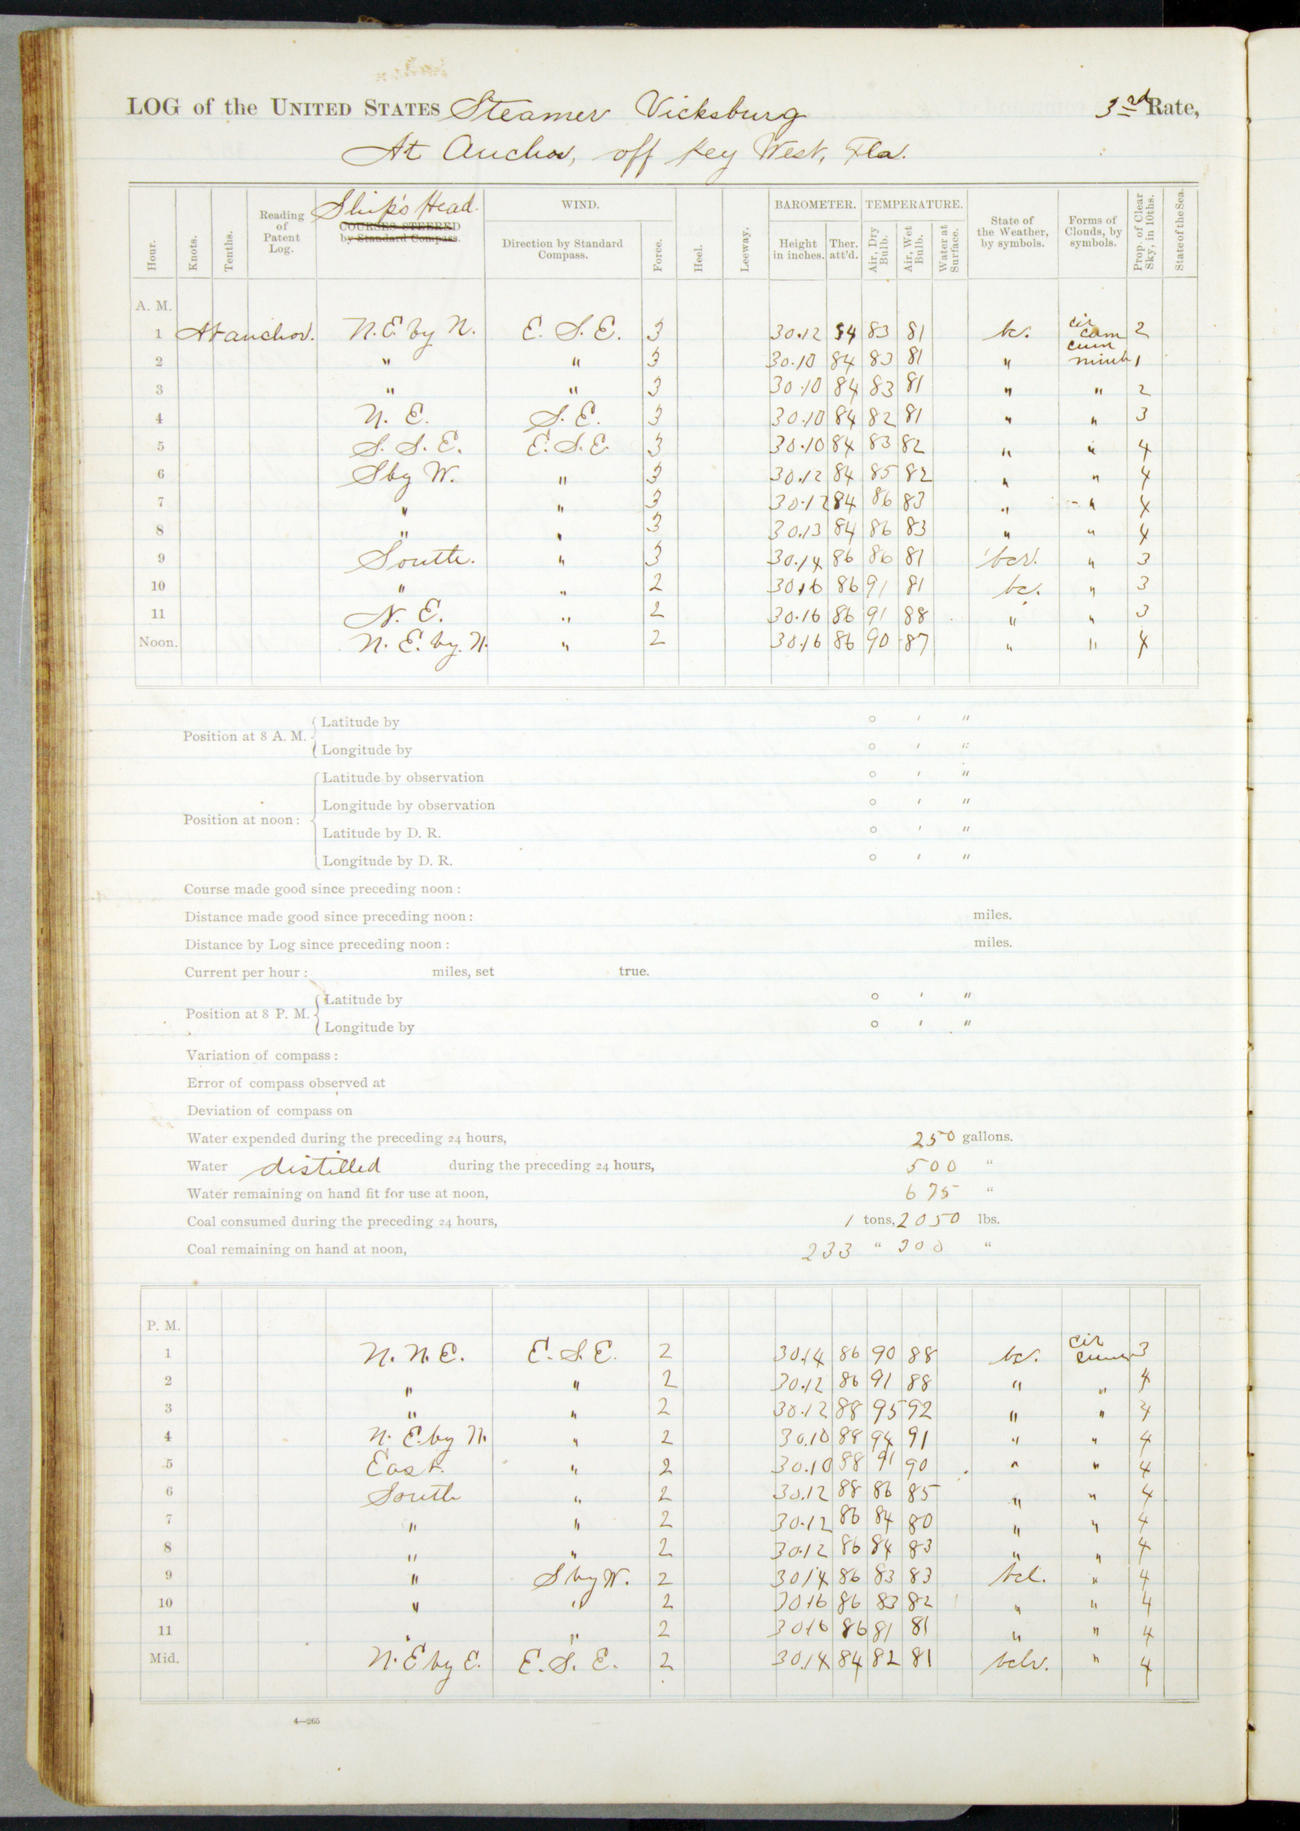 LOG of the UNITED STATES Steamer Vicksburg 3rd Rate,
At Anchor, off Key West, Fla.
Hour. Knots. Tenths. Reading of Patent Log. Ship's Head. COURSES STEERED by Standard Compass. WIND. Direction by Standard Compass. Force. Heel. Leeway. BAROMETER. Height in inches. Ther. att'd. TEMPERATURE. Air, Dry Bulb. Air, Wet Bulb. Water at Surface. State of the Weather, by symbols. Forms of Clouds, by symbols. Prop. of Clear Sky, in 10ths. State of the Sea.
A. M.
1 At anchor. N.E. by N. E. S. E. 3 30.12 84 83 81 bc. cir cum 2
2 " " 3 30.10 84 83 81 " cum nimb 1
3 " " 3 30.10 84 83 81 " " 2
4 N. E. S. E. 3 30.10 84 82 81 " " 3
5 S. S. E. E. S. E. 3 30.10 84 83 82 " " 4
6 S by W. " 3 30.12 84 85 82 " " 4
7 " " 3 30.12 84 86 83 " " 4
8 " " 3 30.13 84 86 83 " " 4
9 South. " 3 30.14 86 86 81 bcr. " 3
10 " " 2 30.16 86 91 81 bc. " 3
11 N. E. " 2 30.16 86 91 88 " " 3
Noon. N. E. by N. " 2 30.16 86 90 87 " " 4
Position at 8 A. M. Latitude by ° ′ ″
Longitude by ° ′ ″
Position at noon: Latitude by observation ° ′ ″
Longitude by observation ° ′ ″
Latitude by D. R. ° ′ ″
Longitude by D. R. ° ′ ″
Course made good since preceding noon:
Distance made good since preceding noon: miles.
Distance by Log since preceding noon: miles.
Current per hour: miles, set true.
Position at 8 P. M. Latitude by ° ′ ″
Longitude by ° ′ ″
Variation of compass:
Error of compass observed at
Deviation of compass on
Water expended during the preceding 24 hours, 250 gallons.
Water distilled during the preceding 24 hours, 500 "
Water remaining on hand fit for use at noon, 675 "
Coal consumed during the preceding 24 hours, 1 tons, 2050 lbs.
Coal remaining on hand at noon, 233 " 300 "
P. M.
1 N. N. E. E. S. E. 2 30.14 86 90 88 bc. cir cum 3
2 " " 2 30.12 86 91 88 " " 4
3 " " 2 30.12 88 95 92 " " 4
4 N. E. by N. " 2 30.10 88 94 91 " " 4
5 East. " 2 30.10 88 91 90 " " 4
6 South " 2 30.12 88 86 85 " " 4
7 " " 2 30.12 86 84 80 " " 4
8 " " 2 30.12 86 84 83 " " 4
9 " S by W. 2 30.14 86 83 83 bcl. " 4
10 " " 2 30.16 86 83 82 " " 4
11 " " 2 30.16 86 81 81 " " 4
Mid. N. E by E. E. S. E. 2 30.14 84 82 81 bclr. " 4
4—265